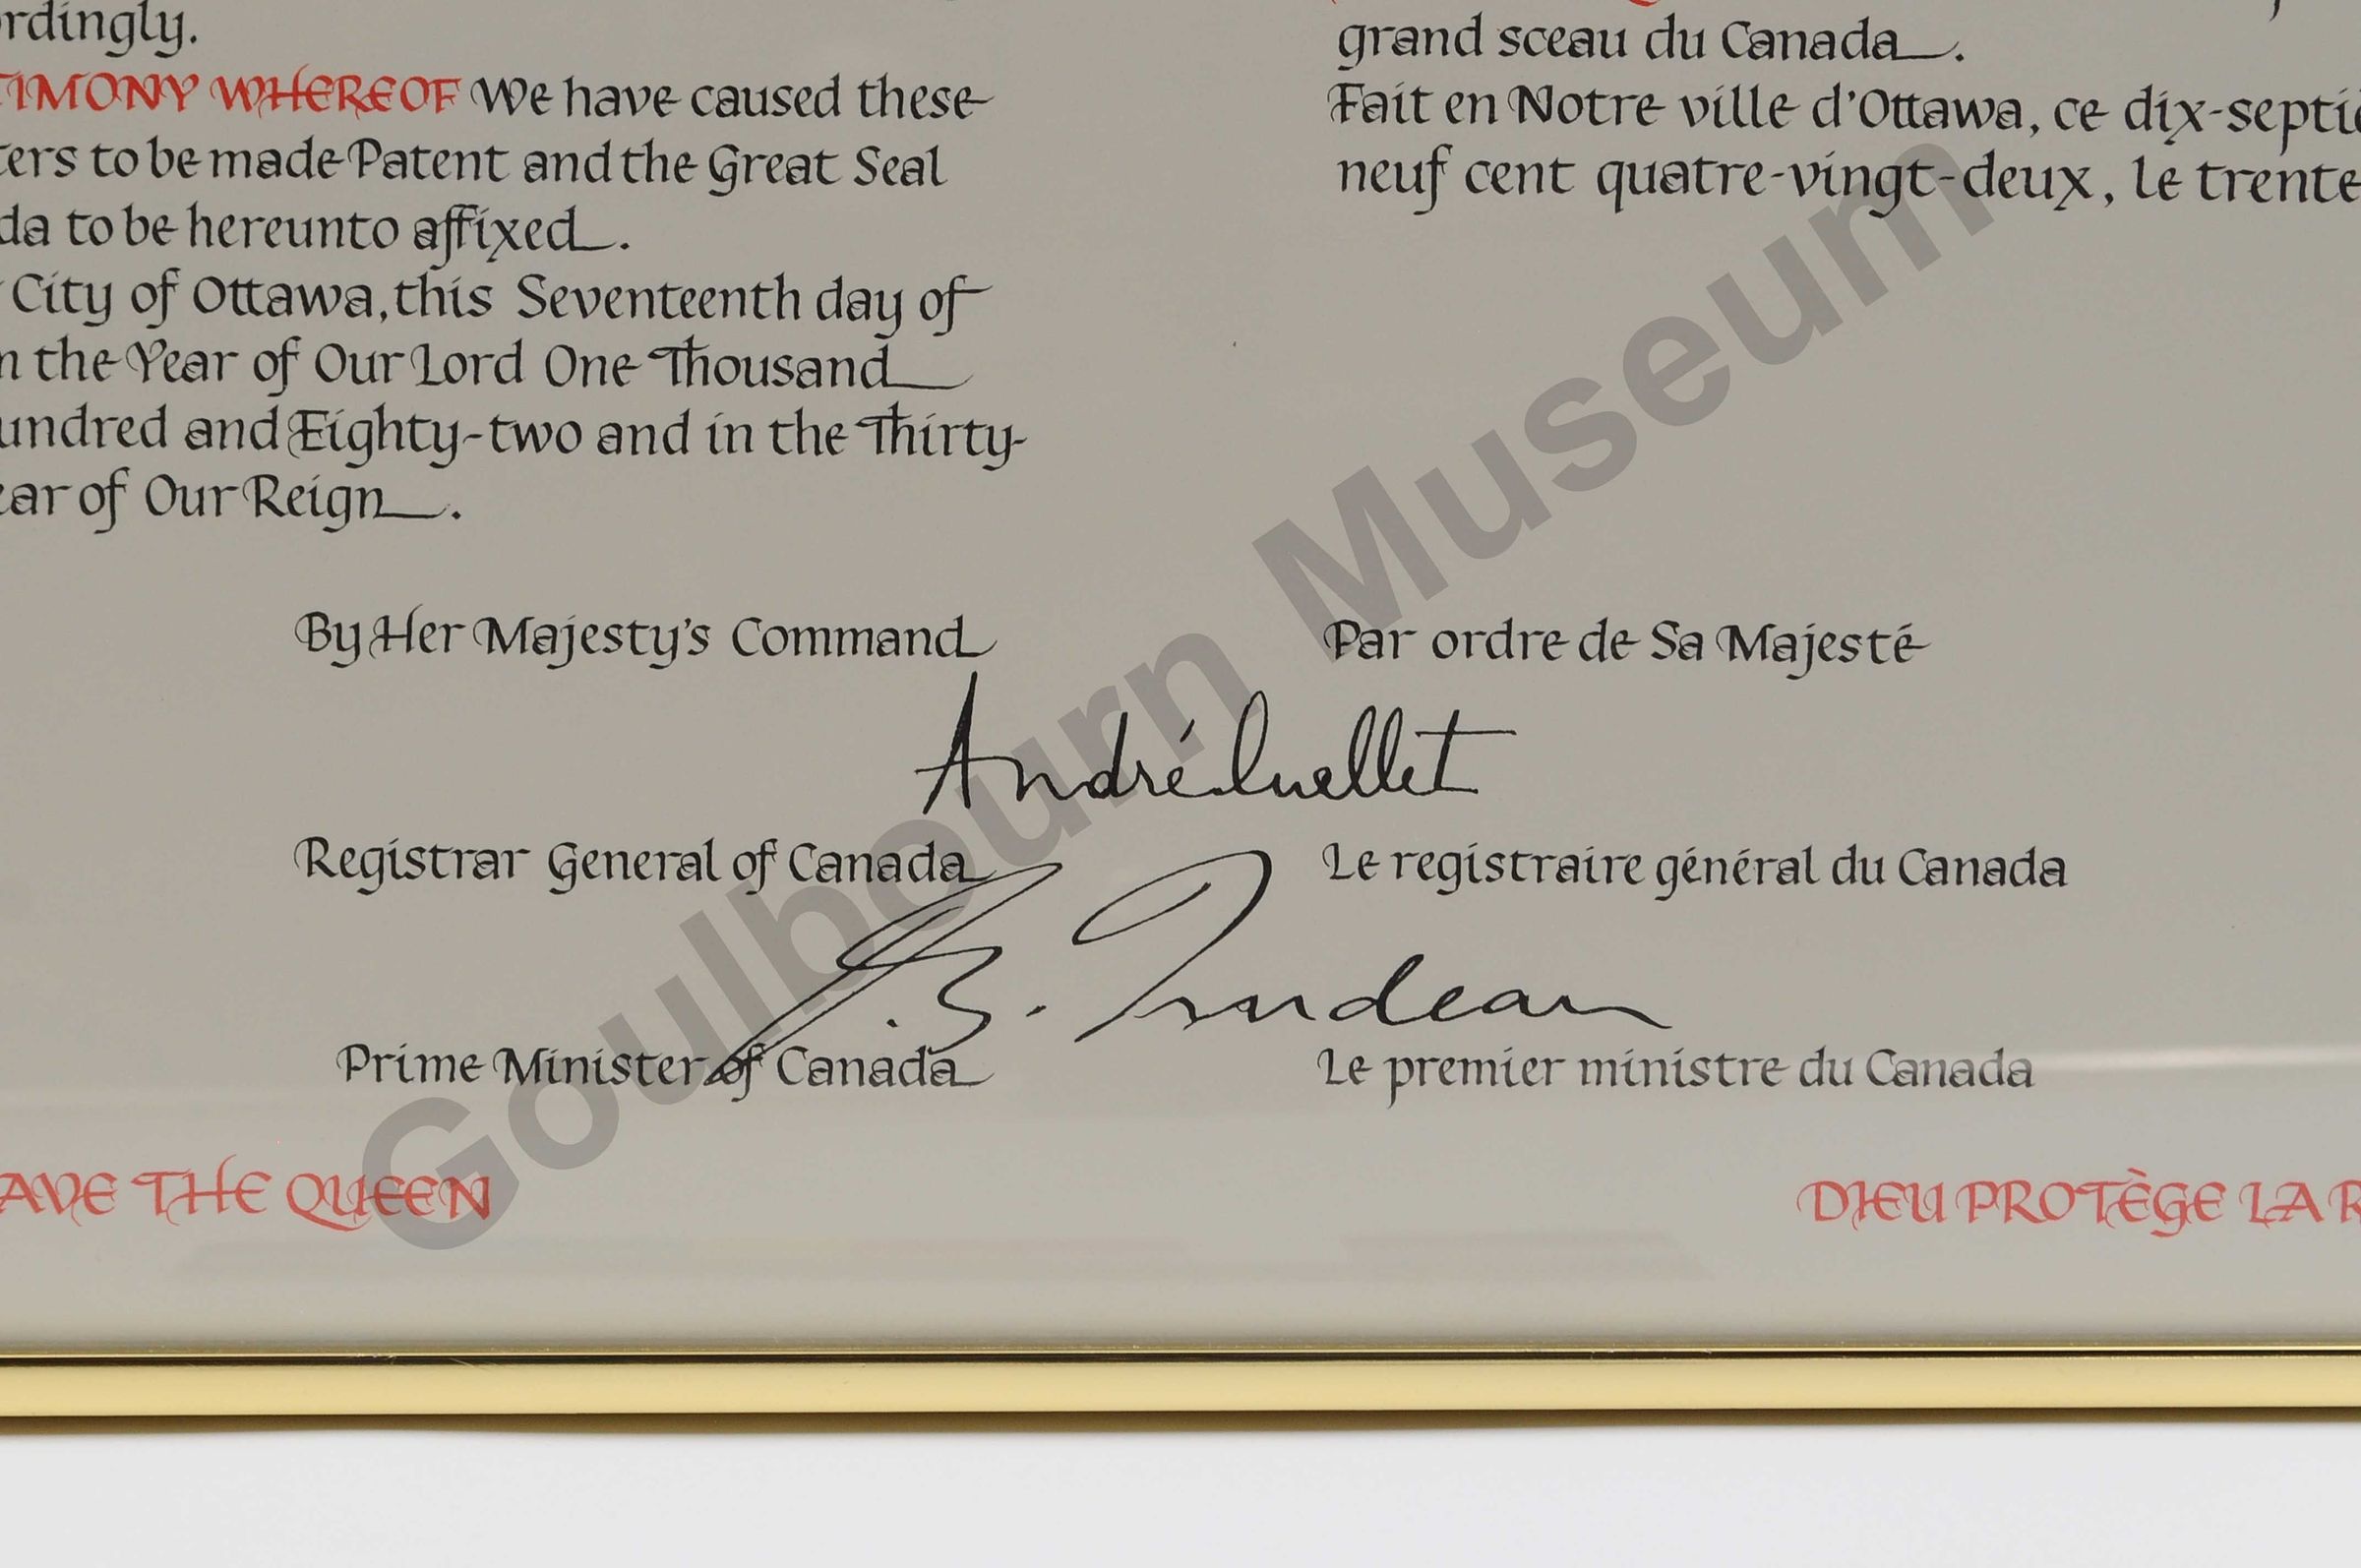 rdingly.
TIMONY WHEREOF We have caused these
ters to be made Patent and the Great Seal
da to be hereunto affixed.
City of Ottawa, this Seventeenth day of
n the Year of Our Lord One Thousand
undred and Eighty-two and in the Thirty-
ear of Our Reign.
grand sceau du Canada.
Fait en Notre ville d'Ottawa, ce dix-septiè
neuf cent quatre-vingt-deux, le trente
By Her Majesty's Command
Par ordre de Sa Majesté
André Ouellet
Registrar General of Canada
Le registraire général du Canada
P. E. Trudeau
Prime Minister of Canada
Le premier ministre du Canada
AVE THE QUEEN
DIEU PROTÈGE LA R
Goulbourn Museum